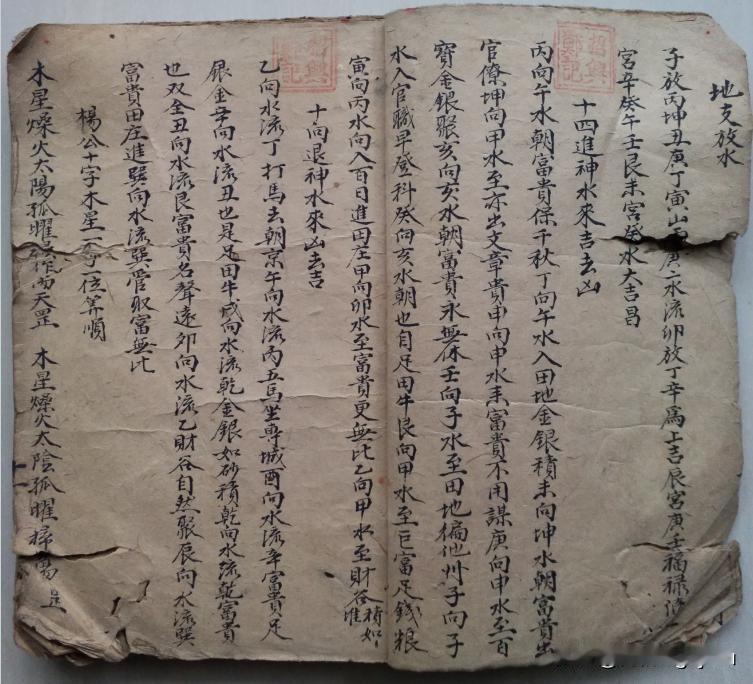 地支放水
子放丙坤丑庚丁寅山
庚二水流卯放丁辛爲上吉辰宮庚壬福禄
宮辛癸午壬艮未宮癸水大吉昌
十四進神水來吉去凶
丙向午水朝富貴保千秋丁向午水入田地金銀積未向坤水朝富貴出
官僚坤向甲水至亦出文章貴申向申水来富貴不用謀庚向申水至百
寶金銀聚亥向亥水朝富貴永無休壬向子水至田地徧他州子向子
水入官職早登科癸向亥水朝也自足田牛艮向甲水至巨富足錢粮
寅向丙水向入百日進田庄甲向卯水至富貴更無比乙向甲水至財谷積如
堆
十向退神水來凶去吉
乙向水流丁打馬去朝京午向水流丙五馬坐專城酉向水流辛富貴足
銀金辛向水流丑也是足田牛戌向水流乾金銀如砂積乾向水流乾富貴
也双全丑向水流艮富貴名聲遠卯向水流乙財谷自然聚辰向水流巽
富貴田庄進巽向水流巽管取富無比
楊公十字木星一字一位筭順
木星燥火太陽孤曜
天罡 木星燥火太陰孤曜掃蕩